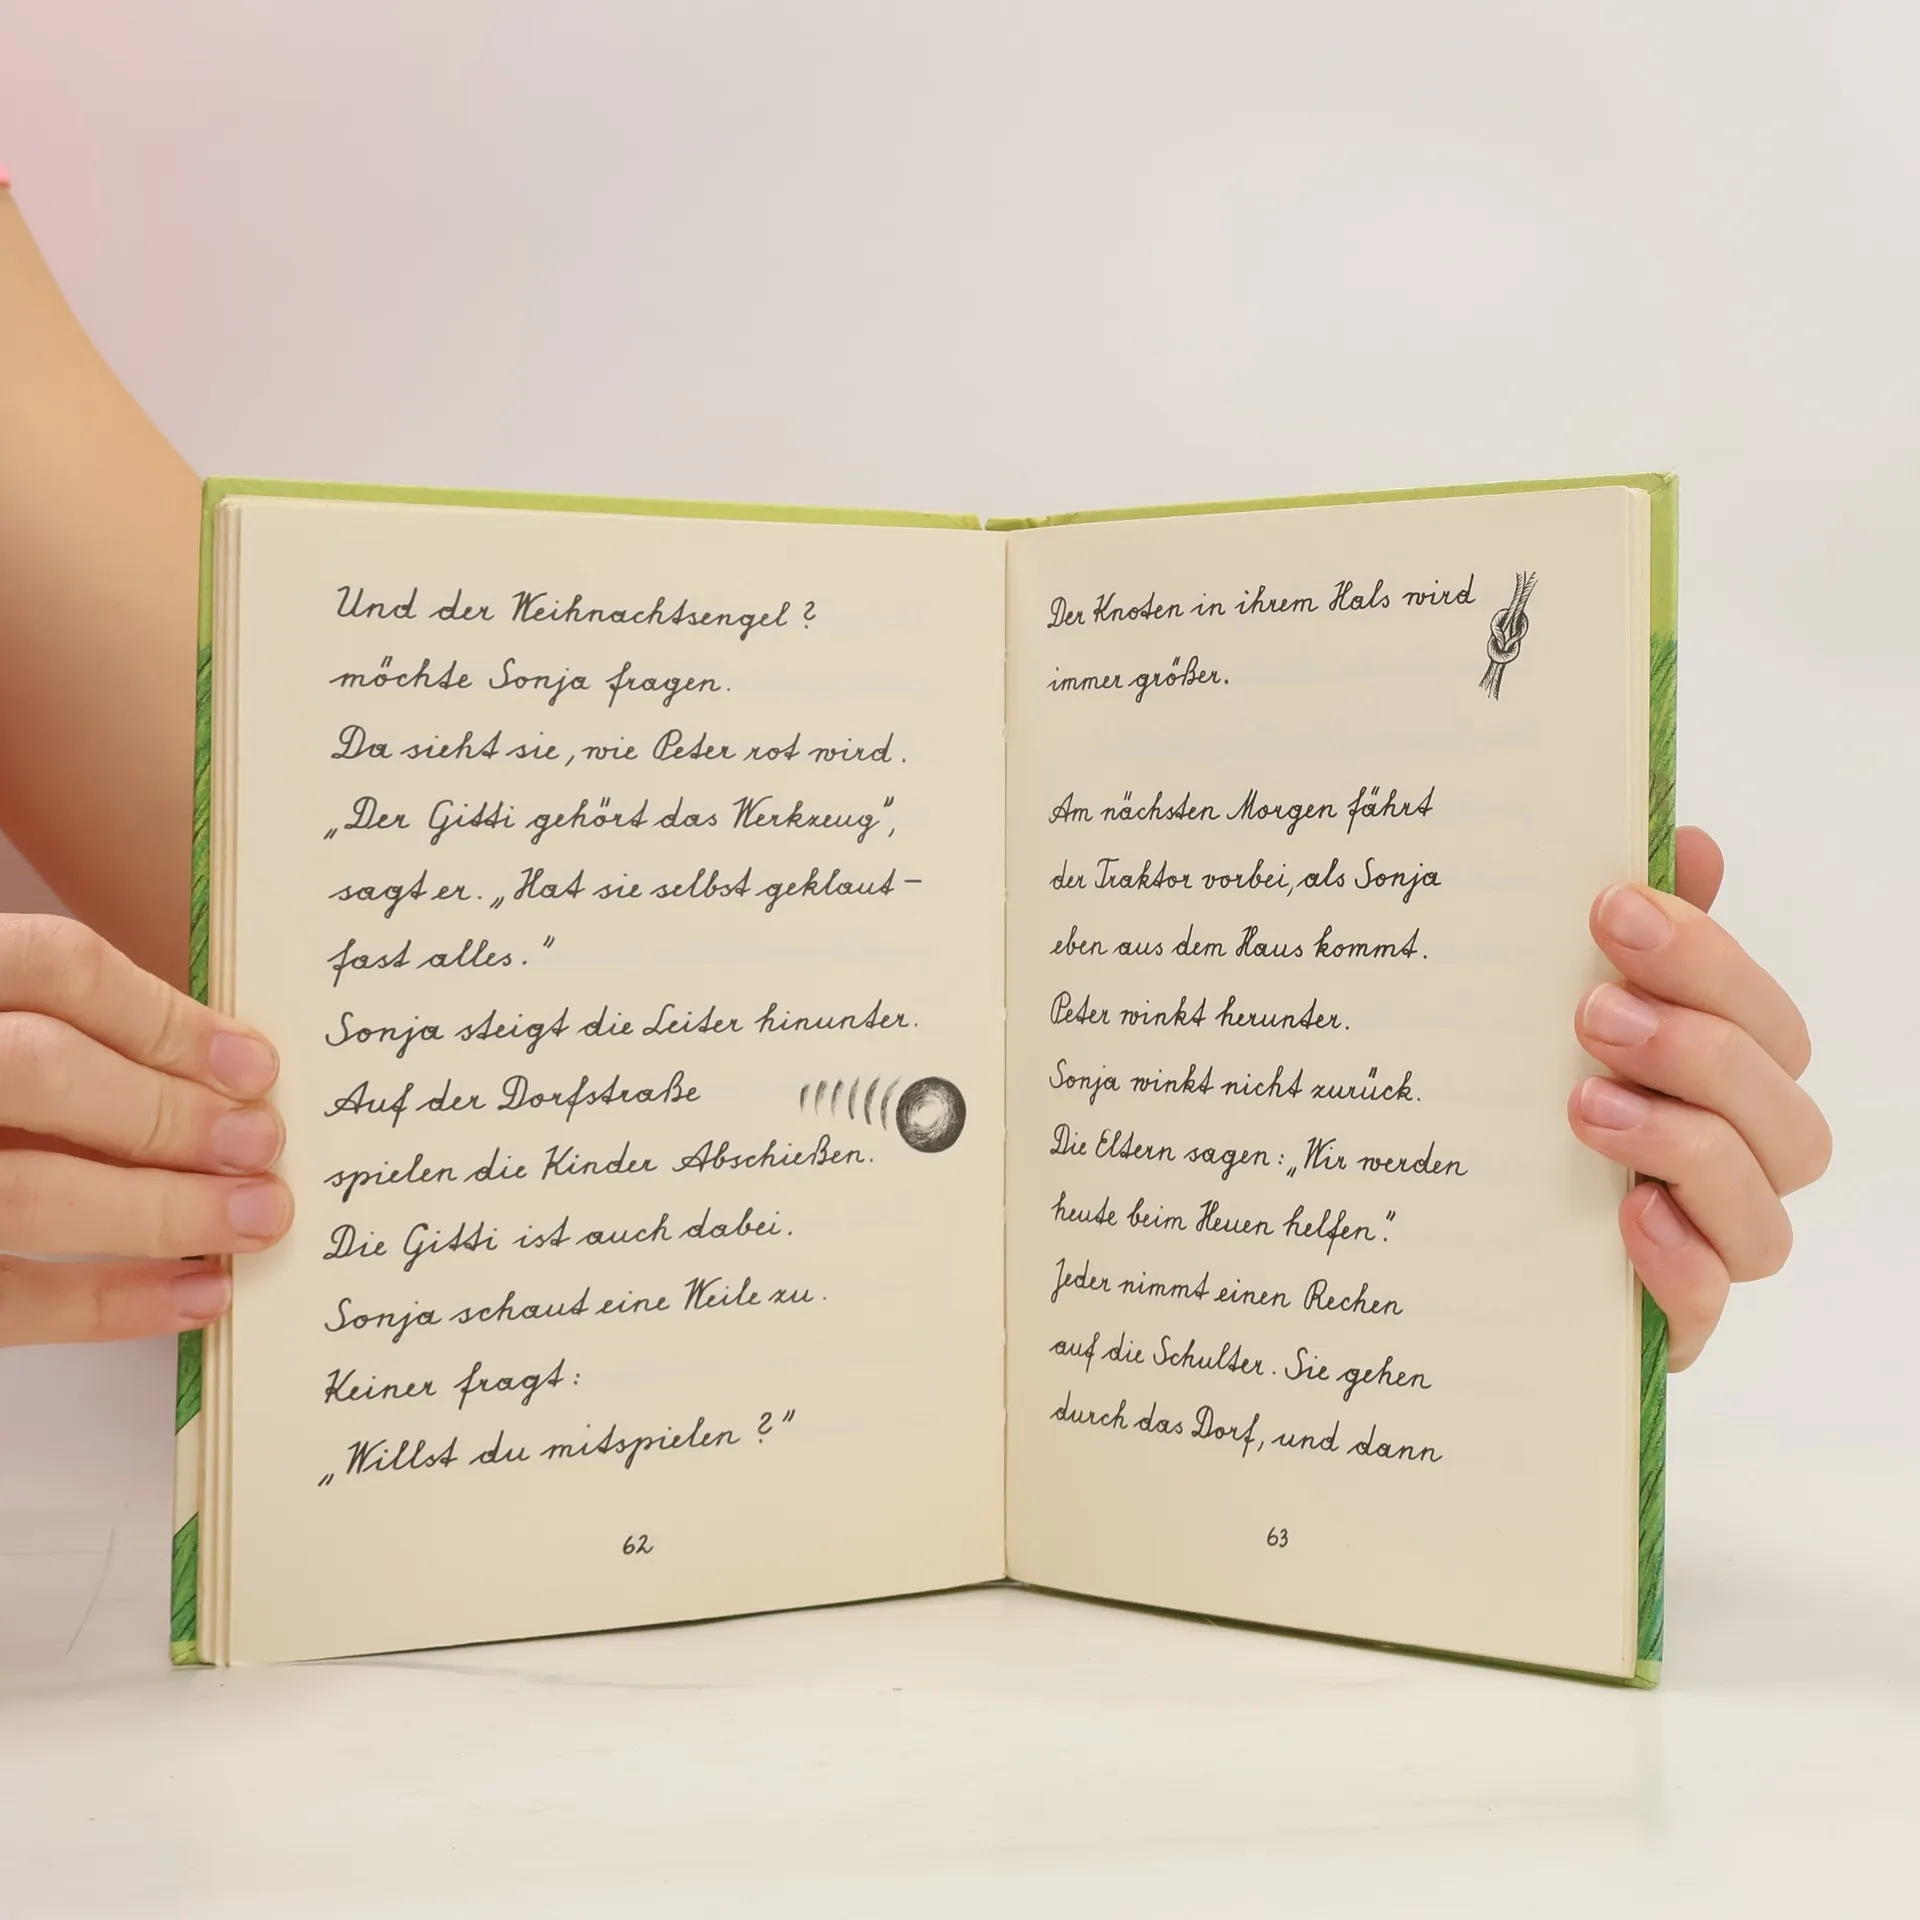 Und der Weihnachtsengel?
möchte Sonja fragen.
Da sieht sie, wie Peter rot wird.
„Der Gitti gehört das Werkzeug",
sagt er. „Hat sie selbst geklaut –
fast alles."
Sonja steigt die Leiter hinunter.
Auf der Dorfstraße
spielen die Kinder Abschießen.
Die Gitti ist auch dabei.
Sonja schaut eine Weile zu.
Keiner fragt:
„Willst du mitspielen?"
62
Der Knoten in ihrem Hals wird
immer größer.
Am nächsten Morgen fährt
der Traktor vorbei, als Sonja
eben aus dem Haus kommt.
Peter winkt herunter.
Sonja winkt nicht zurück.
Die Eltern sagen: „Wir werden
heute beim Heuen helfen."
Jeder nimmt einen Rechen
auf die Schulter. Sie gehen
durch das Dorf, und dann
63